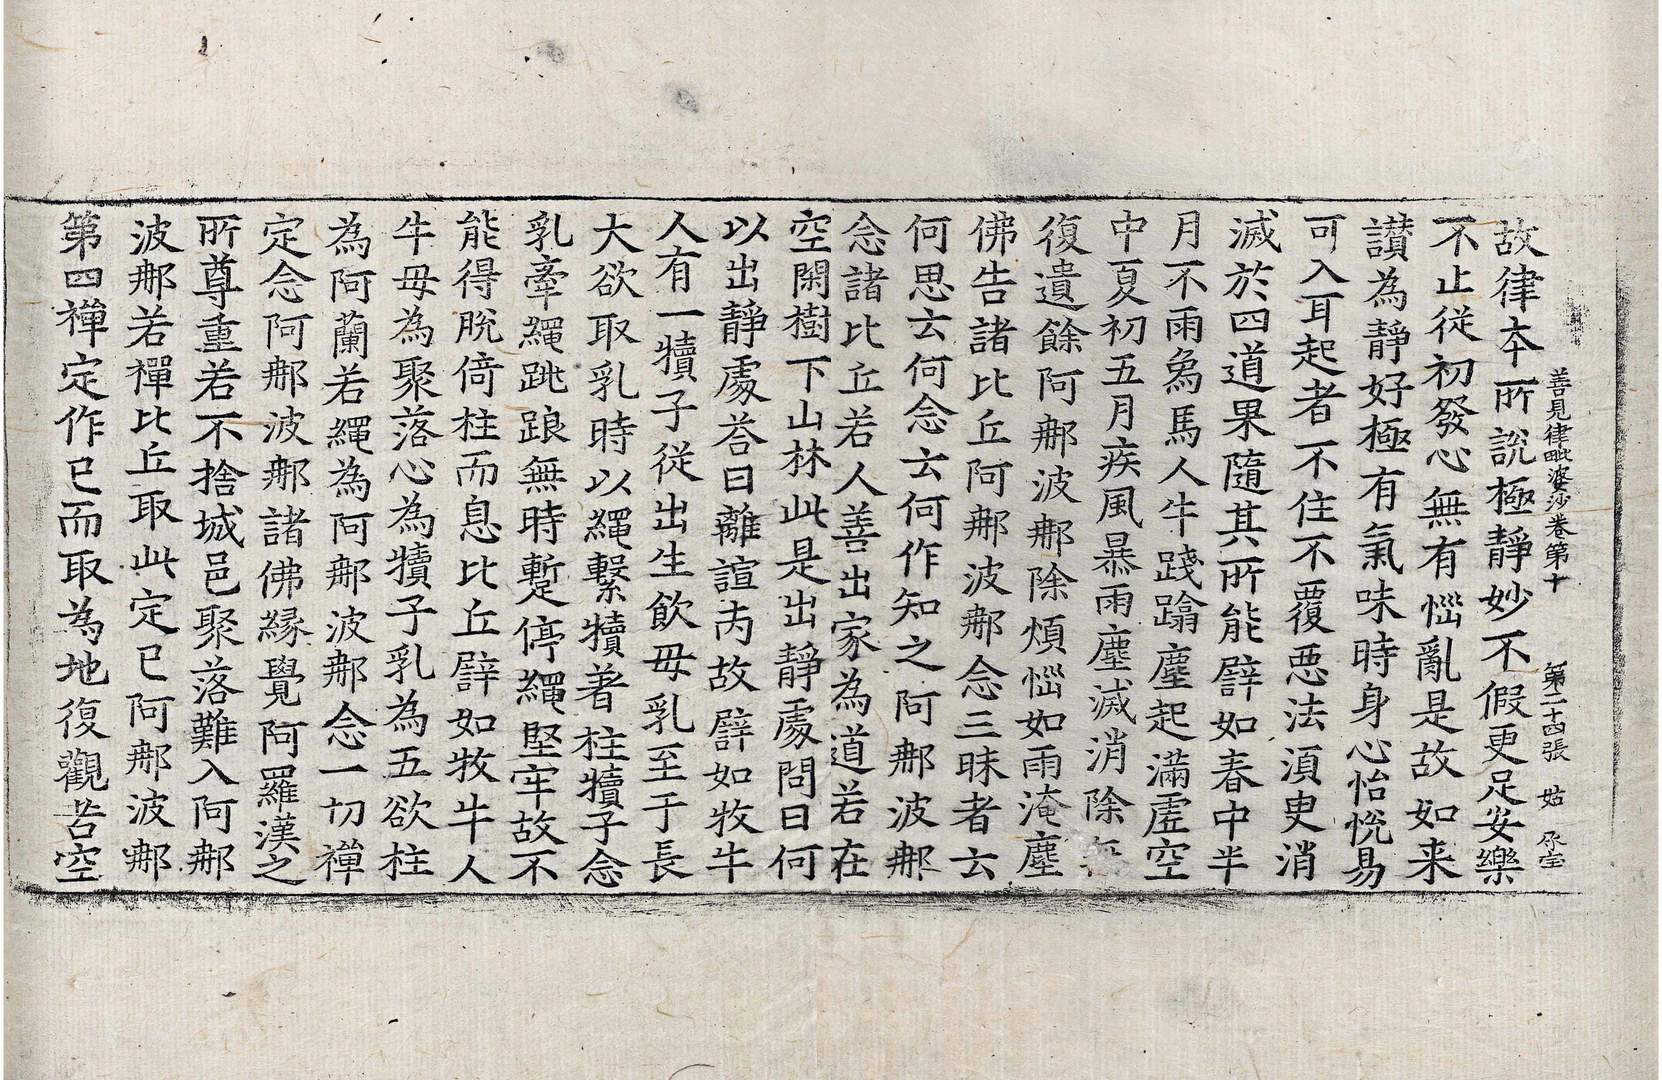 善見律毗婆沙卷第十 第二十四張 姑
故律本所說極靜妙不假更足安樂
不止從初發心無有惱亂是故如来
讃為靜好極有氣味時身心怡恱易
可入耳起者不住不覆惡法湏臾消
滅於四道果隨其所能譬如春中半
月不雨象馬人牛踐蹹塵起滿虛空
中夏初五月疾風暴雨塵滅消除無
復遺餘阿那波那除煩惱如雨淹塵
佛告諸比丘阿那波那念三昧者云
何思云何念云何作知之阿那波那
念諸比丘若人善出家為道若在
空閑樹下山林此是出靜處問曰何
以出靜處荅曰離諠丙故譬如牧牛
人有一犢子從出生飲毋乳至于長
大欲取乳時以繩繫犢著柱犢子念
乳牽繩跳踉無時蹔停繩堅牢故不
能得脫倚柱而息比丘譬如牧牛人
牛毋為聚落心為犢子乳為五欲柱
為阿蘭若繩為阿那波那念一切禪
定念阿那波那諸佛緣覺阿羅漢之
所尊重若不捨城邑聚落難入阿那
波那若禪比丘取此定已阿那波那
第四禪定作已而取為地復觀苦空